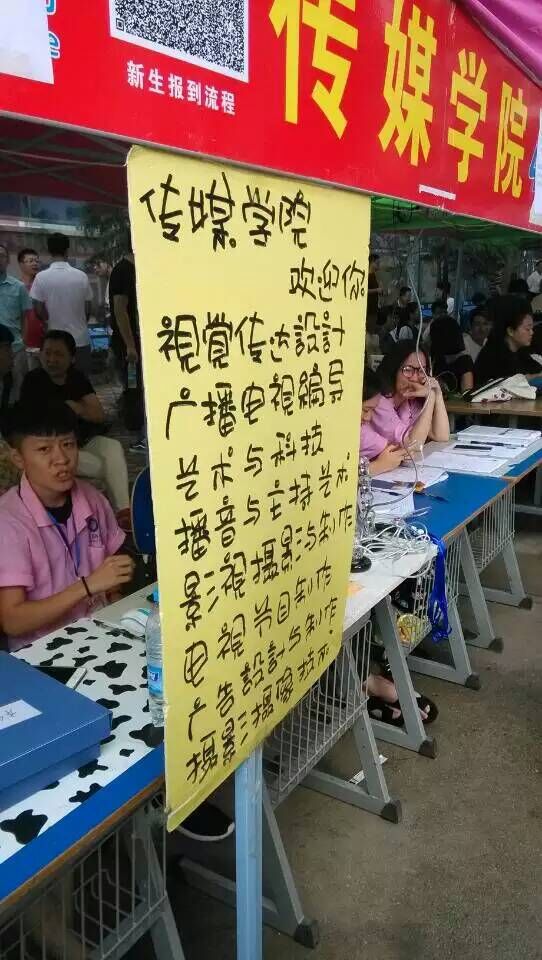 新生报到流程
传媒学院
传媒学院
欢迎你。
視觉传达設計
广播电視編导
艺术与科技
播音与主持艺术
影視摄影与制作
电視节目制作
广告設計与制作
摄影摄像技术